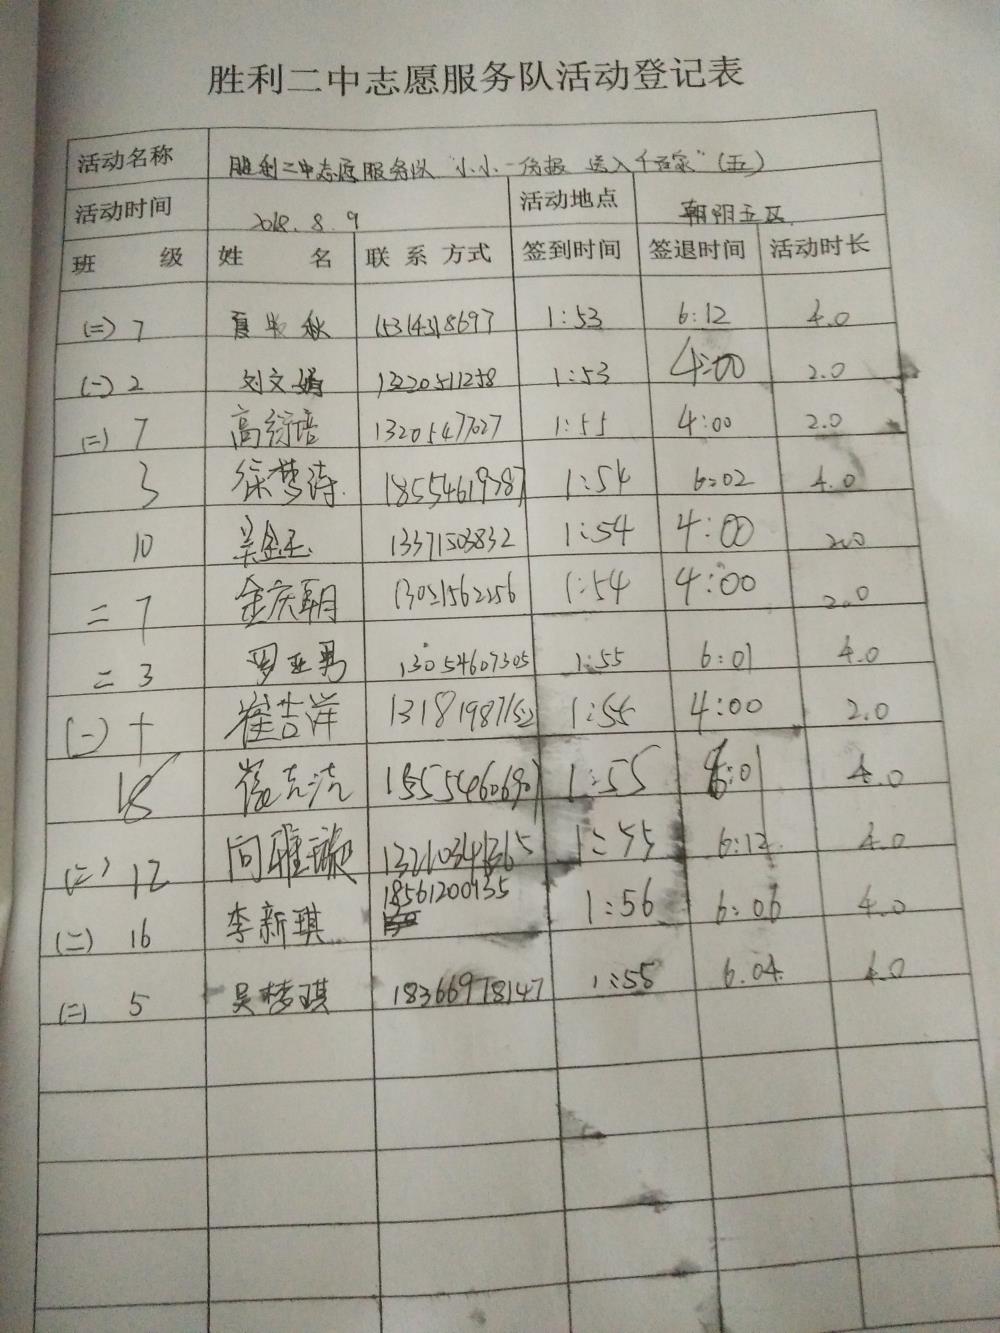 胜利二中志愿服务队活动登记表
活动名称 胜利二中志愿服务队“小小一份报 送入千万家”(五)
活动时间 2018.8.9 活动地点 朝阳五区
班 级 姓 名 联系方式 签到时间 签退时间 活动时长
(二) 7 夏 秋 15314318697 1:53 6:12 4.0
(一) 2 刘文娟 13220511258 1:53 4:00 2.0
(二) 7 高衍培 13205477027 1:55 4:00 2.0
3 徐梦诗 1:54 6:02 4.0
10 吴金玉 13371503832 1:54 4:00 2.0
二 7 金庆朝 1:54 4:00 2.0
二 3 罗亚男 13054607305 1:55 6:01 4.0
(一) 十 崔吉洋 1:55 4:00 2.0
18 1:55 6:01 4.0
(二) 12 向雅璇 1:55 6:12 4.0
(二) 16 李新琪 18561200935 1:56 6:06 4.0
(二) 5 吴梦琪 18366978147 1:55 6.04 4.0